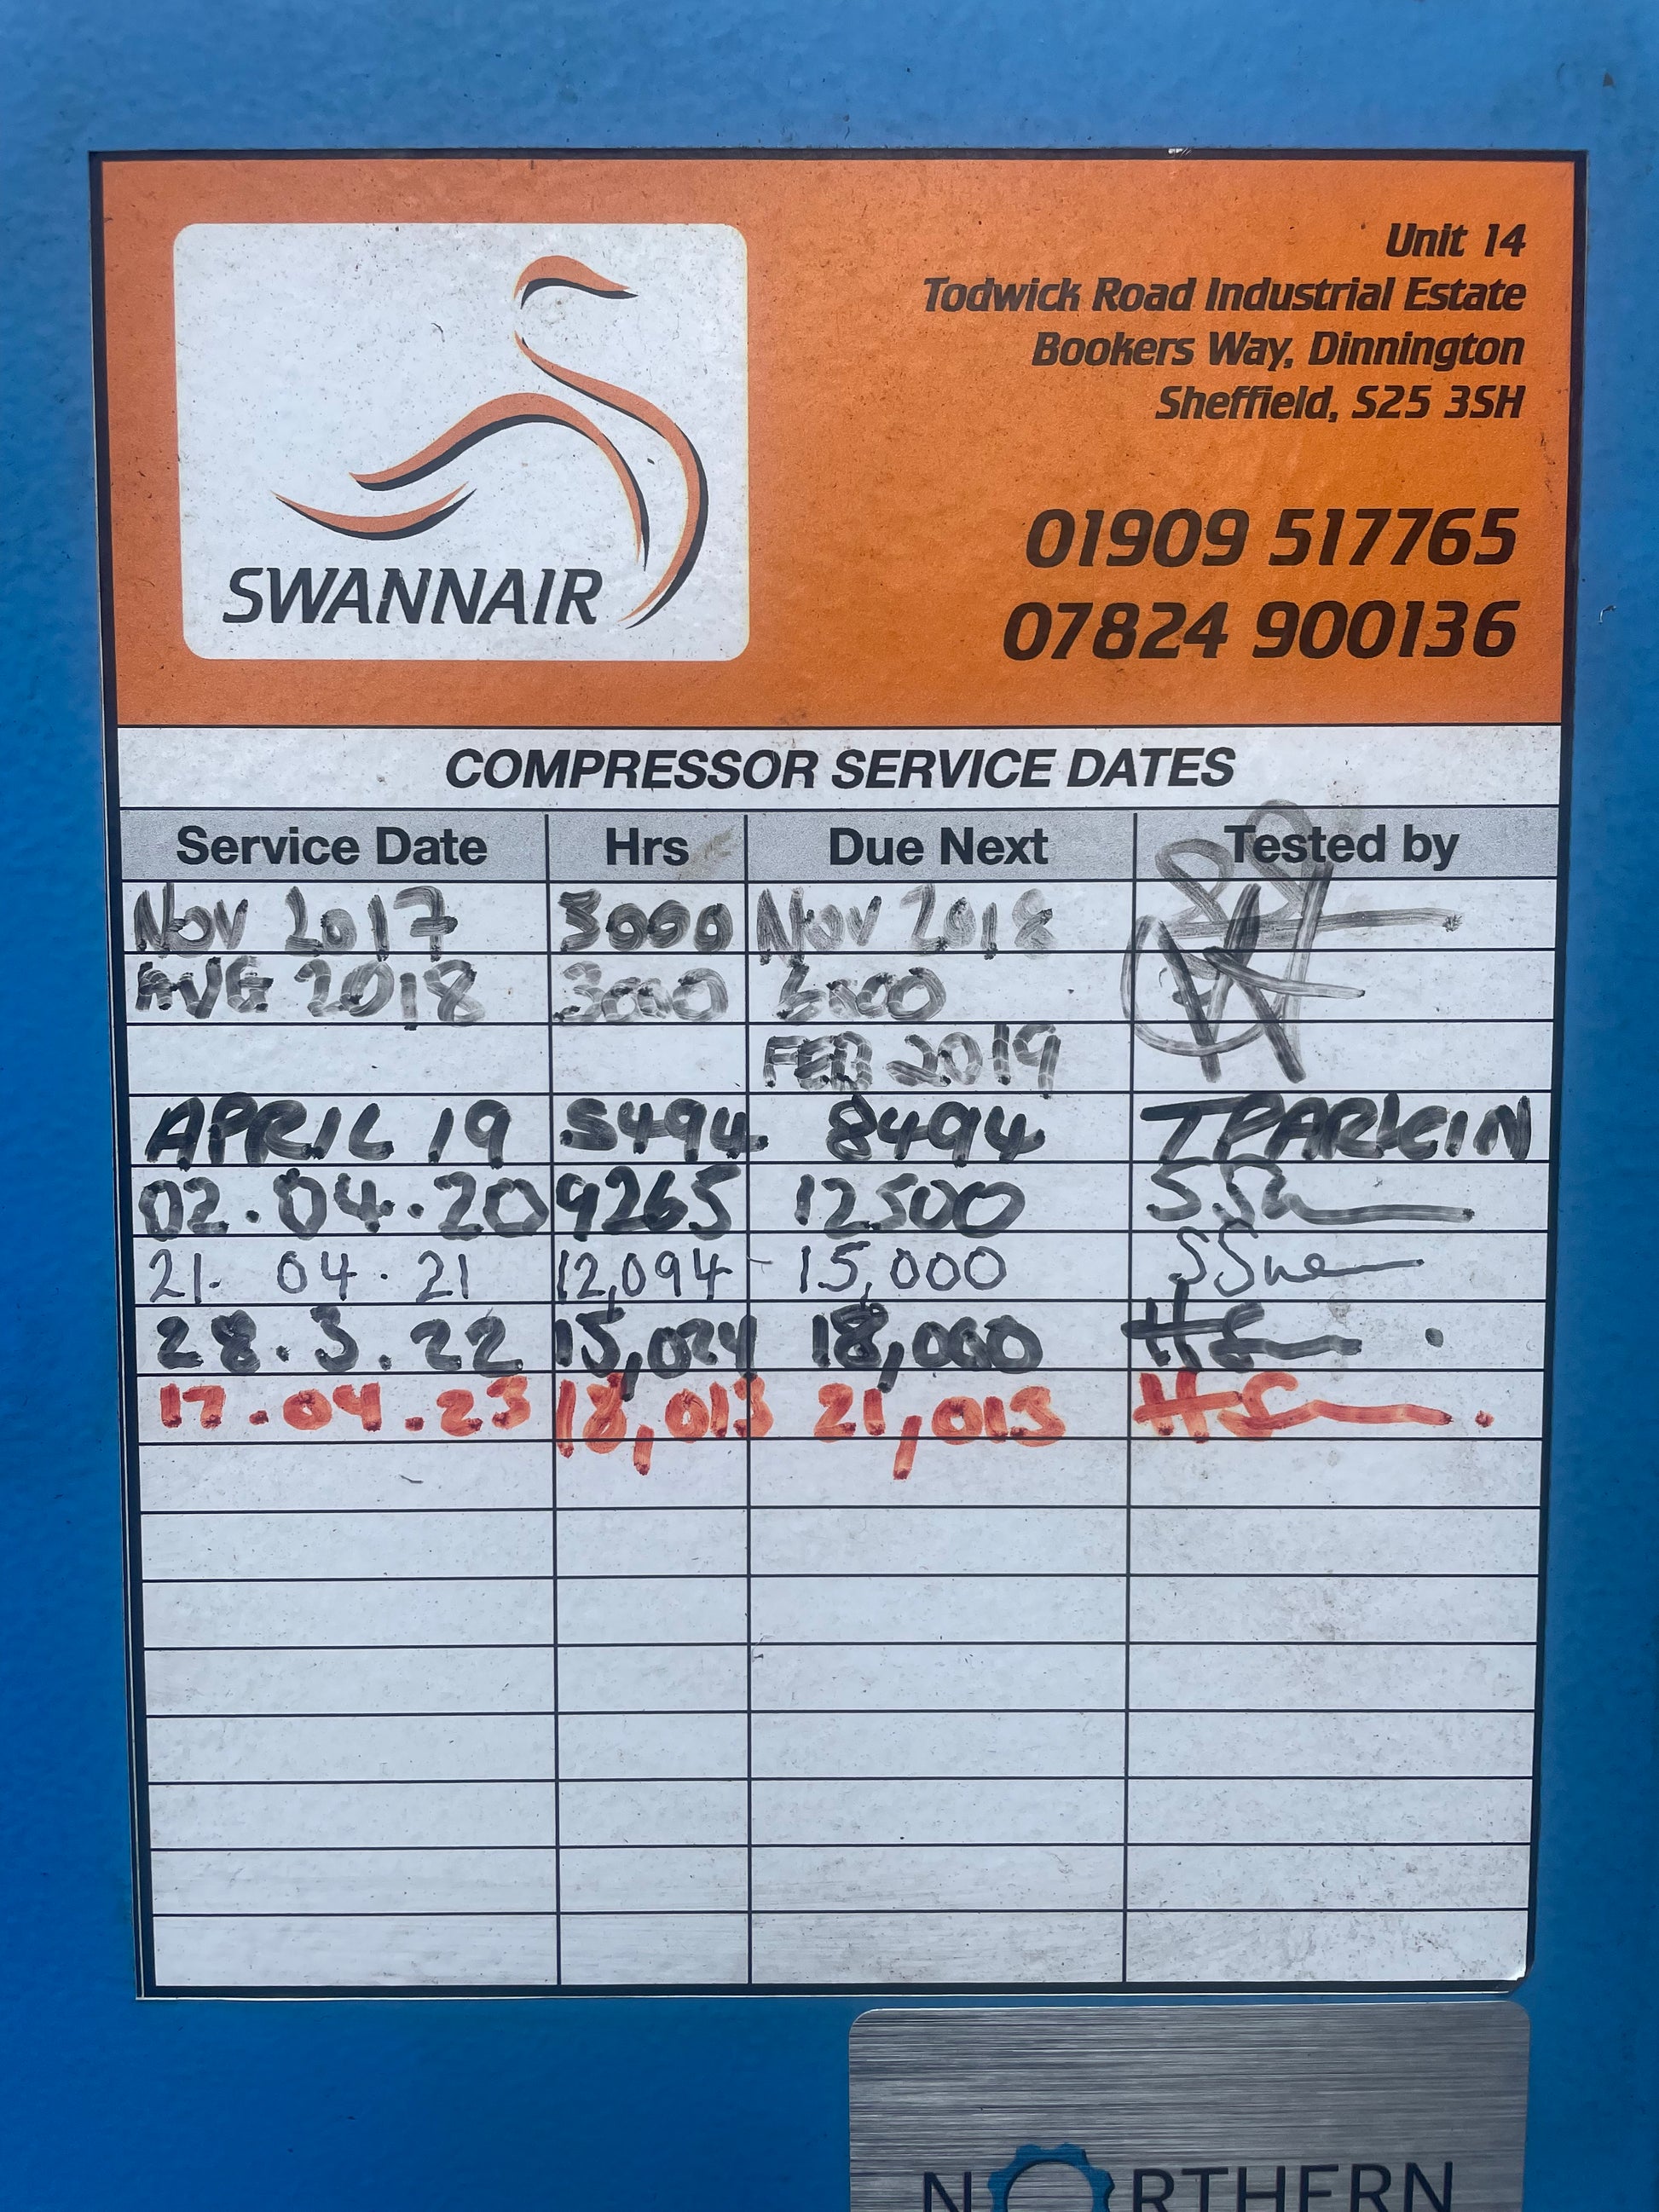 Unit 14
Todwick Road Industrial Estate
Bookers Way, Dinnington
Sheffield, S25 3SH
01909 517765
07824 900136
SWANNAIR
COMPRESSOR SERVICE DATES
Service Date Hrs Due Next Tested by
NOV 2017 3000 NOV 2018
AUG 2018 3000 6000
FEB 2019
APRIL 19 5494 8494 T PARKIN
02.04.20 9265 12500
21. 04. 21 12,094 15,000
28.3.22 15,024 18,000
17.04.23 18,013 21,013
NORTHERN